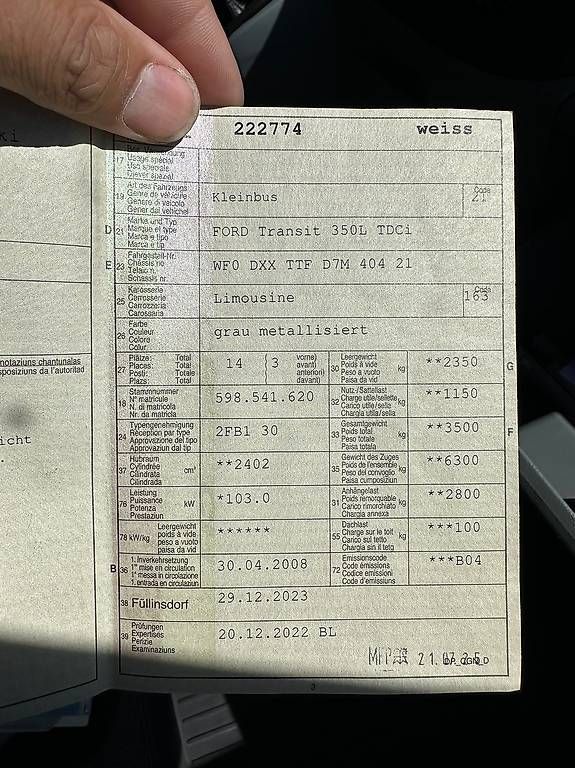 ki
222774 weiss
17 Usage spécial
Uso speciale
Diever spezial
19 Art des Fahrzeugs
Genre de véhicule
Genere di veicolo
Gener dal vehichel
Kleinbus
Code
21
D 21 Marke und Typ
Marque et type
Marca e tipo
Marca e tip
FORD Transit 350L TDCi
E 23 Fahrgestell-Nr.
Châssis no
Telaio n.
Schassis nr.
WF0 DXX TTF D7M 404 21
25 Karosserie
Carrosserie
Carrozzeria
Carossaria
Limousine
Code
163
26 Farbe
Couleur
Colore
Colur
grau metallisiert
27 Plätze: Total
Places: Total
Posti: Totale
Plazs: Total
14 (3 vorne)
avant)
anteriori)
davant)
30 Leergewicht
Poids à vide
Peso a vuoto
Paisa da vid
kg
**2350
G
18 Stammnummer
N° matricule
N. di matricola
Nr. da matricla
598.541.620
32 Nutz-/Sattellast
Charge utile/sellette
Carico utile/sella
Chargia utila/sella
kg
**1150
24 Typengenehmigung
Réception par type
Approvazione del tipo
Approvaziun dal tip
2FB1 30
33 Gesamtgewicht
Poids total
Peso totale
Paisa totala
kg
**3500
F
37 Hubraum
Cylindrée
Cilindrata
Cilindrada
cm³
**2402
35 Gewicht des Zuges
Poids de l'ensemble
Peso del convoglio
Paisa cumposiziun
kg
**6300
76 Leistung
Puissance
Potenza
Prestaziun
kW
*103.0
31 Anhängelast
Poids remorquable
Carico rimorchiato
Chargia annexa
kg
**2800
78 kW/kg Leergewicht
poids à vide
peso a vuoto
paisa da vid
******
55 Dachlast
Charge sur le toit
Carico sul tetto
Chargia sin il tetg
kg
***100
B 36 1. Inverkehrsetzung
1re mise en circulation
1a messa in circolazione
1. entrada en circulaziun
30.04.2008
72 Emissionscode
Code émissions
Codice emissioni
Code d'emissiuns
***B04
38 Füllinsdorf
29.12.2023
39 Prüfungen
Expertises
Perizie
Examinaziuns
20.12.2022 BL
21.07.25
3
notaziuns chantunalas
sposiziuns da l'autoritad
icht